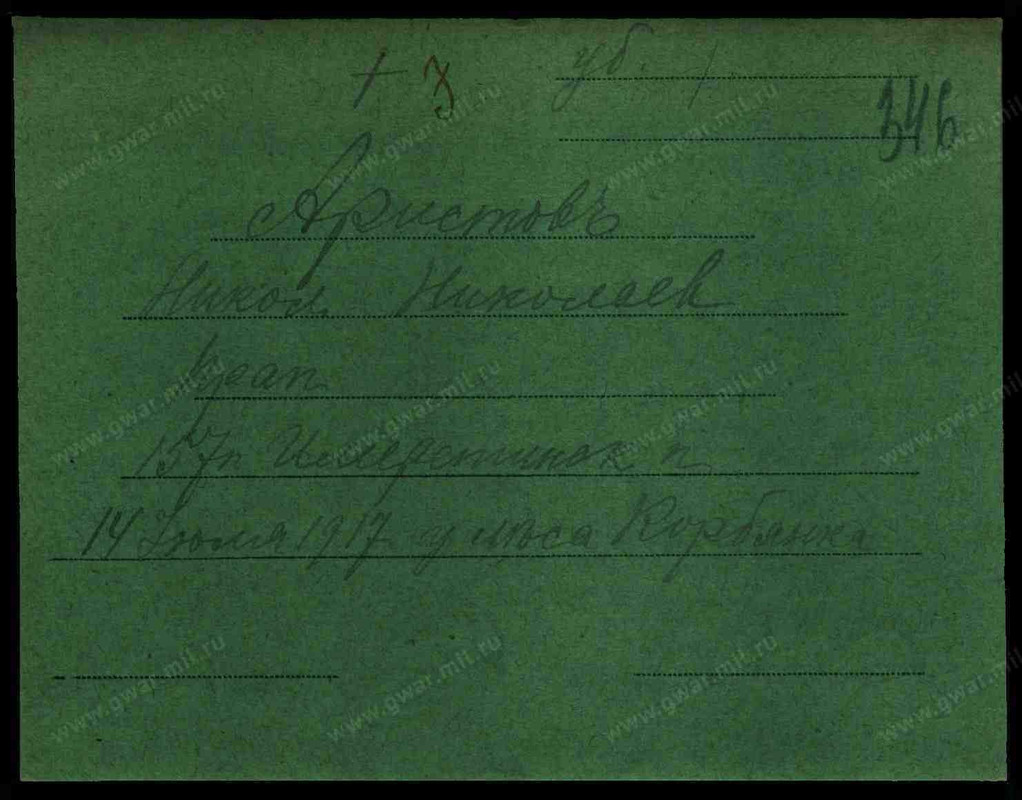 + З уб. 1
346
Аристовъ
Никол. Николаев
Прап
157п Имеретинск п.
14 Июля 1917 у лѣса Корбянка
www.gwar.mil.ru